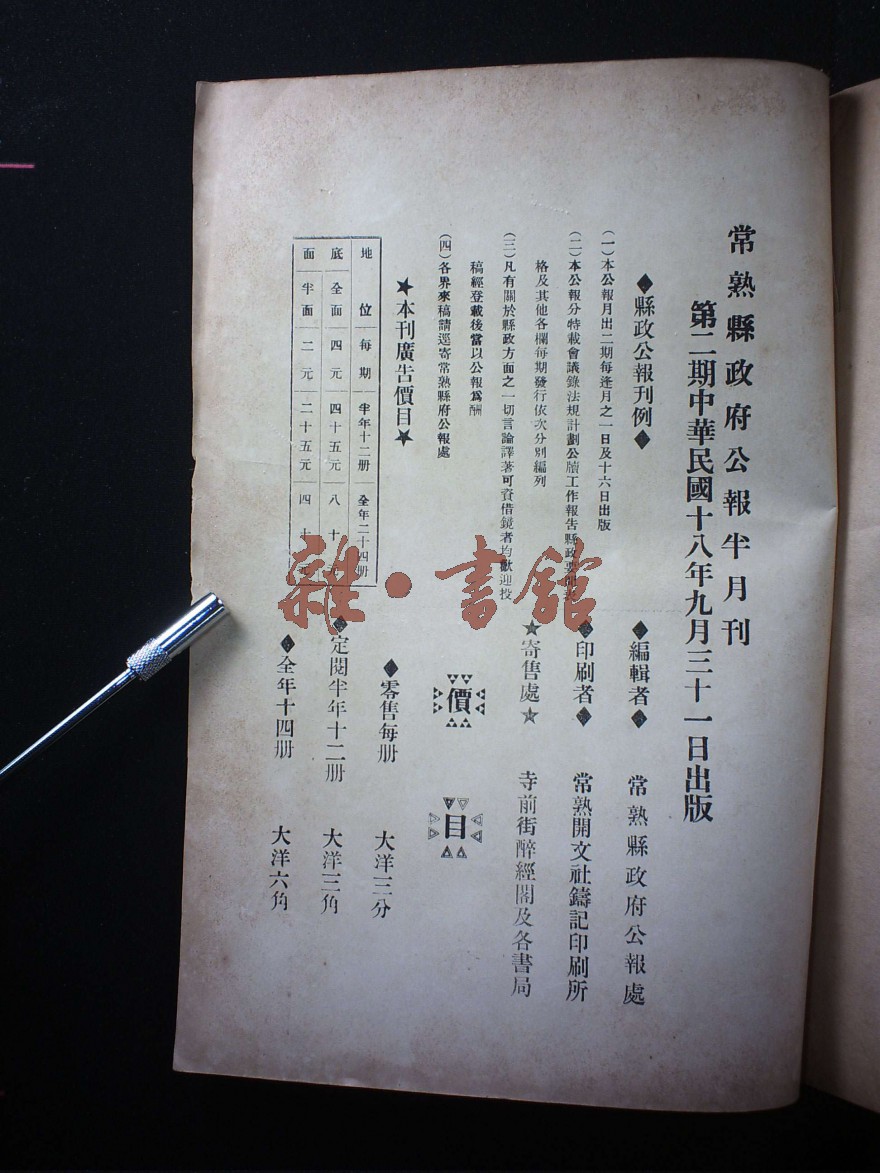 常熟縣政府公報半月刊
第二期中華民國十八年九月三十一日出版
◆縣政公報刊例◆
(一)本公報月出二期每逢月之一日及十六日出版
(二)本公報分特載會議錄法規計劃公牘工作報告縣政要聞表
格及其他各欄每期發行依次分別編列
(三)凡有關於縣政方面之一切言論譯著可資借鏡者均歡迎投
稿經登載後當以公報爲酬
(四)各界來稿請逕寄常熟縣府公報處
★本刊廣告價目★
地位 每期 半年十二册 全年二十四册
底全面 四元 四十五元 八十元
面半面 二元 二十五元 四十元
◆編輯者◆ 常熟縣政府公報處
◆印刷者◆ 常熟開文社鑄記印刷所
★寄售處★ 寺前街醉經閣及各書局
價目
◆零售每册 大洋三分
◆定閱半年十二册 大洋三角
◆全年十四册 大洋六角
雜·書館